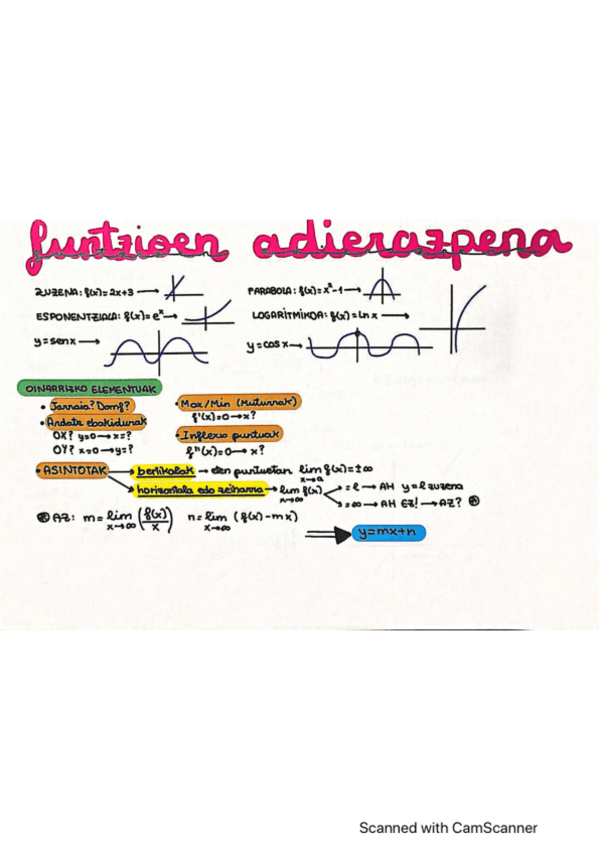 funtzioen adierazpena
ZUZENA: f(x)=2x+3 →
PARABOLA: f(x)=x²-1 →
ESPONENTZIALA: f(x)=eˣ →
LOGARITMIKOA: f(x)=ln x →
y=senx →
y=cosx →
OINARRIZKO ELEMENTUAK
• Jarraia? Domf?
• Max/Min (Muturrak)
f'(x)=0 → x?
• Ardatz ebakidurak
OX? y=0 → x=?
OY? x=0 → y=?
• Inflexio puntuak
f''(x)=0 → x?
• ASINTOTAK → bertikalak → den puntuetan lim f(x)=±∞
x→a
horizontala edo zeiharra → lim f(x) =l → AH y=l zuzena
x→∞ =∞ → AH EZ! → AZ? ⊛
⊛ AZ: m=lim (f(x)/x) n=lim (f(x)-mx)
x→∞ x→∞
⇒ y=mx+n
Scanned with CamScanner